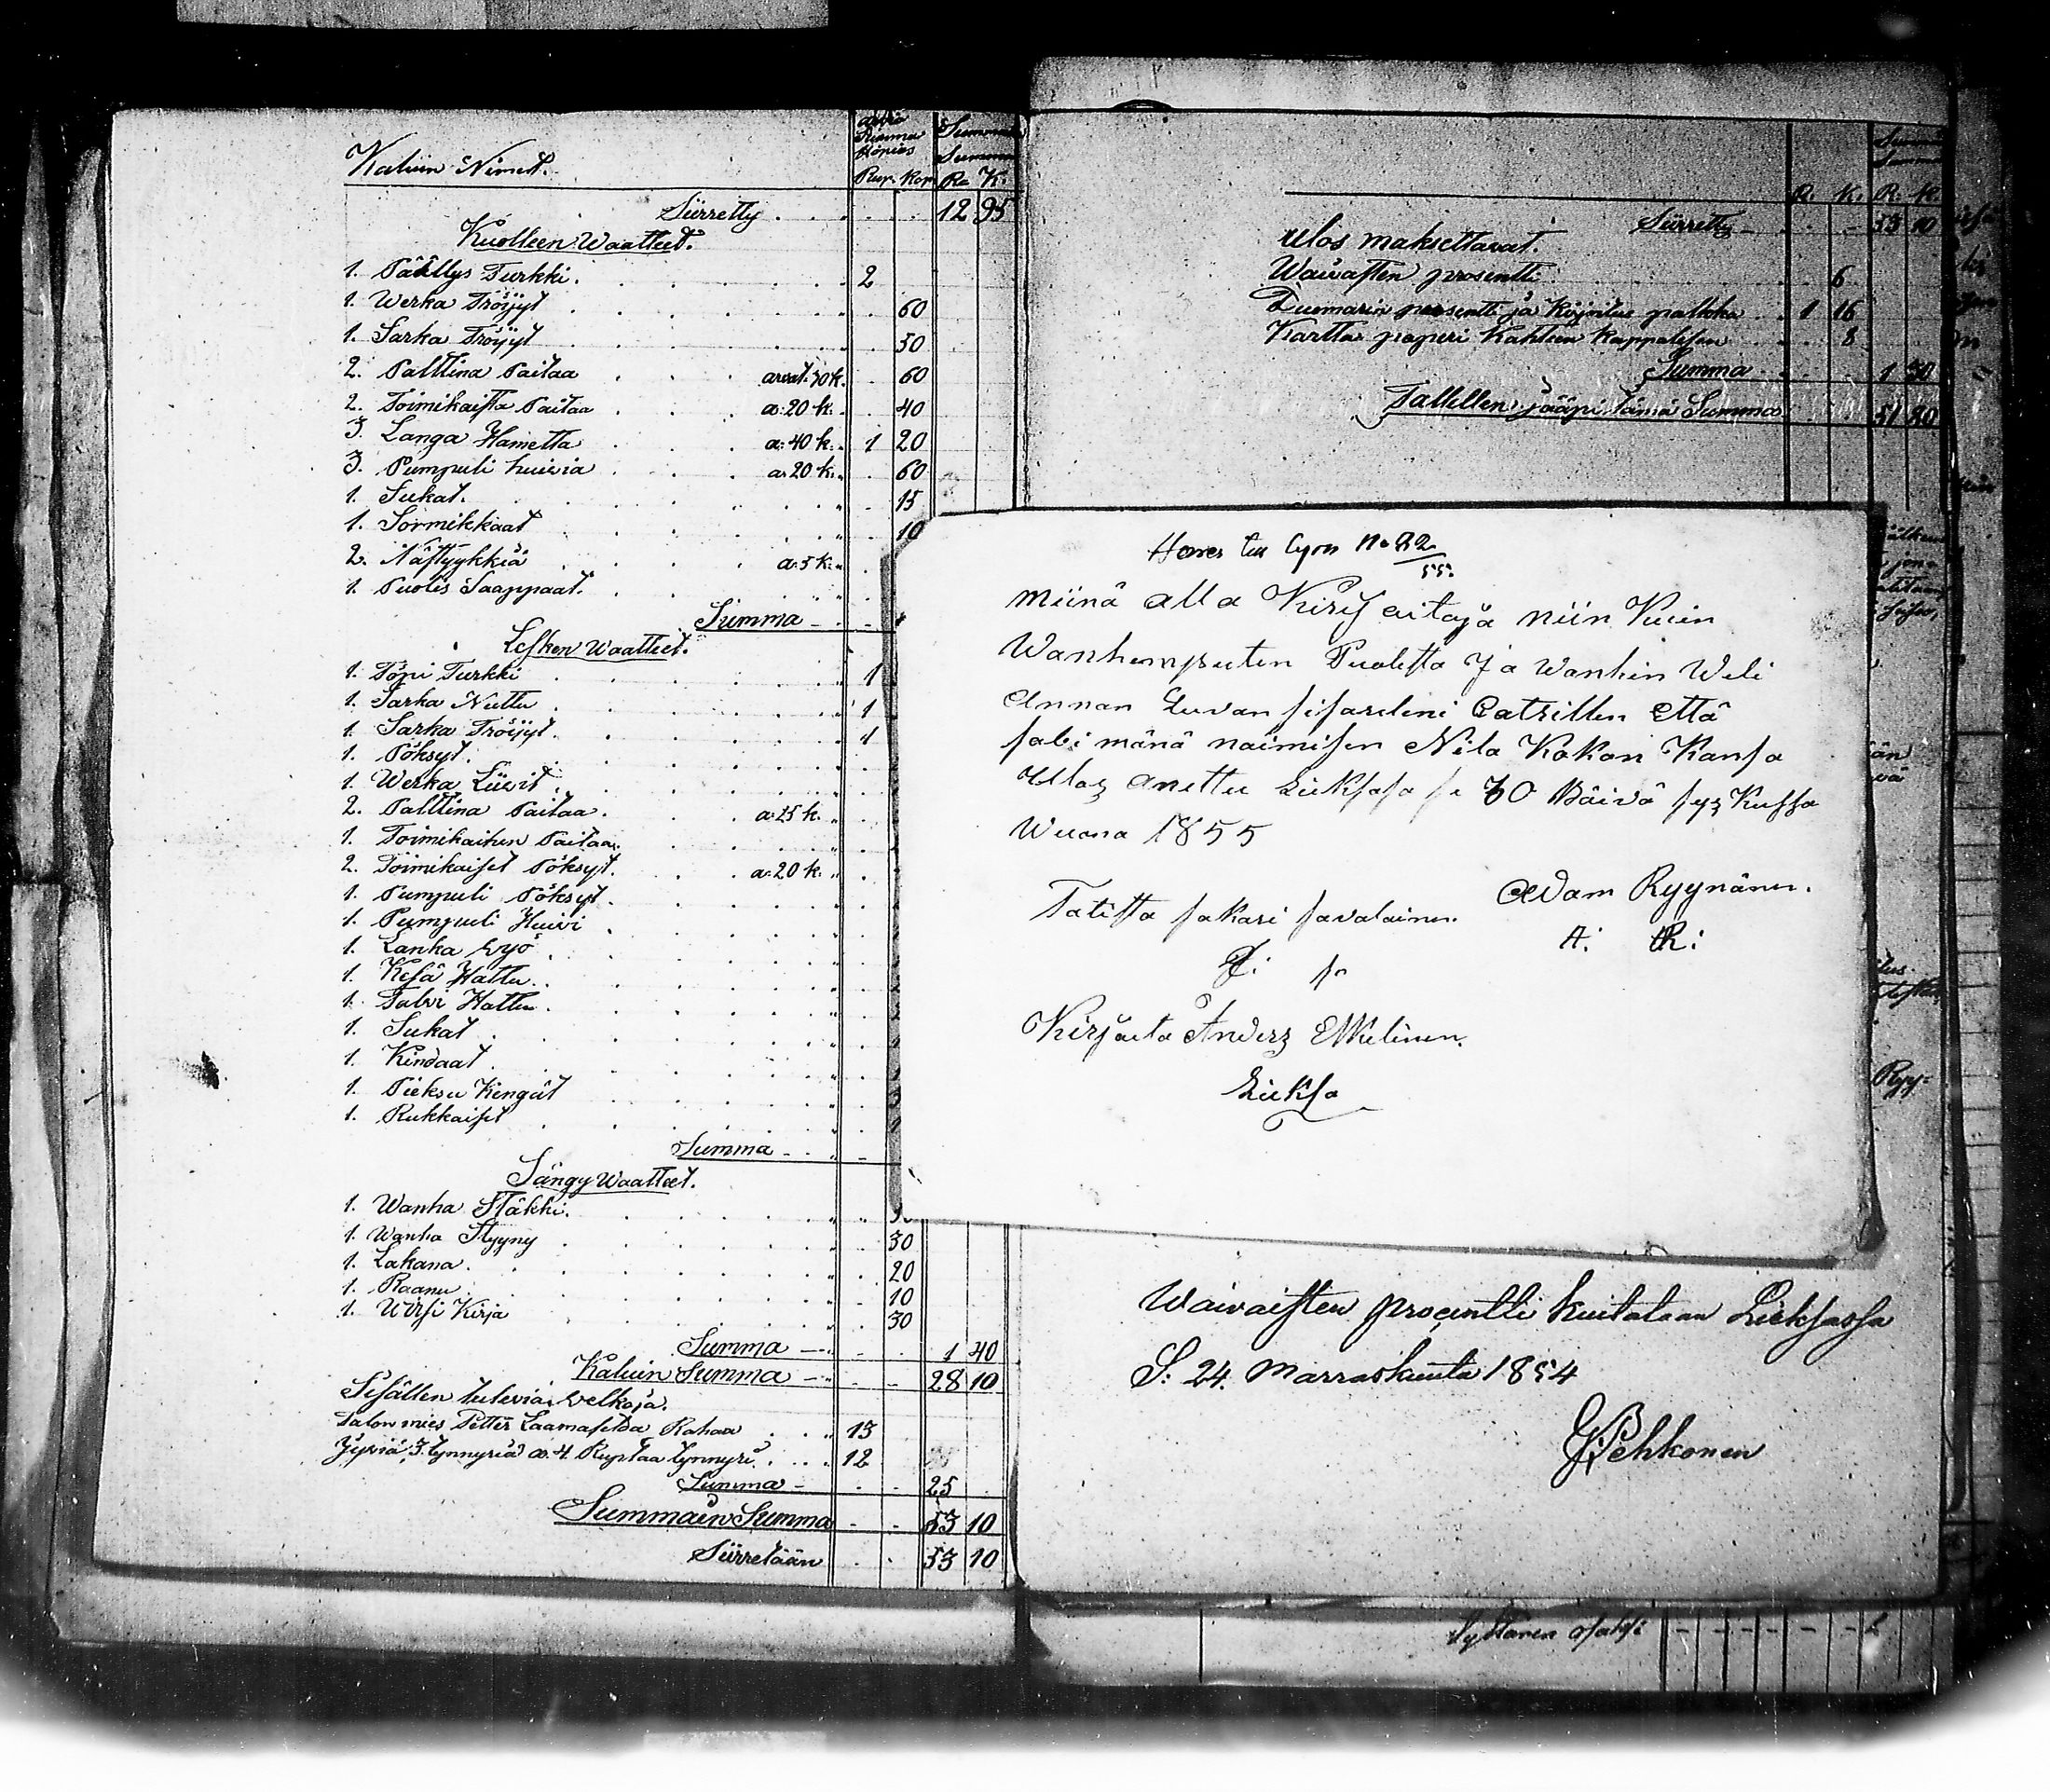 Kaluin Nimet.
arvio Summa
Rup. Kop. Ru K.
Siirretty . . . . . 12 95
Kuolleen Waatteet.
1. Päällys Turkki. 2
1. Werka Tröijyt 60
1. Sarka Tröijyt 50
2. Palttina Paitaa arvat. 30 k. 60
2. Toimikaista Paitaa a: 20 k. 40
3. Langa Hametta a: 40 k. 1 20
3. Pumpuli huivia a: 20 k. 60
1. Sukat. 15
1. Sormikkaat 10
2. Nästyykkiä a: 5 k.
1. Puolis Saappaat.
Summa
Lesken Waatteet.
1. Töpi Turkki 1
1. Sarka Nuttu 1
1. Sarka Tröijyt. 1
1. Pöksyt.
1. Werka Liivit
2. Palttina Paitaa. a: 25 k.
1. Toimikaitsen Paitaa.
2. Toimikaiset Pöksyt. a: 20 k.
1. Pumpuli Pöksyt.
1. Pumpuli Huivi
1. Lanka wyö
1. Kesä Hattu.
1. Talvi Hattu.
1. Sukat
1. Kindaat
1. Pieksu Kengät
1. Rukkaiset
Summa
Sängy Waatteet.
1. Wanha Stäkki.
1. Wanha Ryyny 30
1. Lakana. 20
1. Raanu 10
1. Wirsi Kirja 30
Summa 1 40
Kaluin Summa 28 10
Sisällen tulevia velkoja.
Talon mies Petter Laamaselda Rahaa 13
Jyviä 3. tynnyriä a. 4. Ruplaa tynnyri. 12
Summa 25
Summain Summa 53 10
Siirretään 53 10
Summa
R. K. R. K.
Siirretty 53 10
Ulos maksettavat.
Waivasten prosentti 6
Tuomarin prosentti ja Kirjoitus palkka 1 16
Kartta paperi Kahteen kappalesen 8
Summa 1 30
Tallellen jääpi tämä Summa 51 80
No 22
55.
Miinä alla Kirjoitaja niin Kuin
Wanhemputen Puolesta Ja Wanhin Weli
Annan Luvan sisareleni Catrillen Että
sabi mänä naimisen Nila Kokon Kansa
Ullos anettu Lieksasa se 30 Päivä syz Kussa
Wuona 1855
Adam Ryynänen.
A: R:
Totista sakari savalainen.
Kirjoita Anders Eskelinen.
Lieksa
Waivaisten procentti kuitataan Lieksassa
S: 24. Marraskuuta 1854
Pehkonen
Ryy=